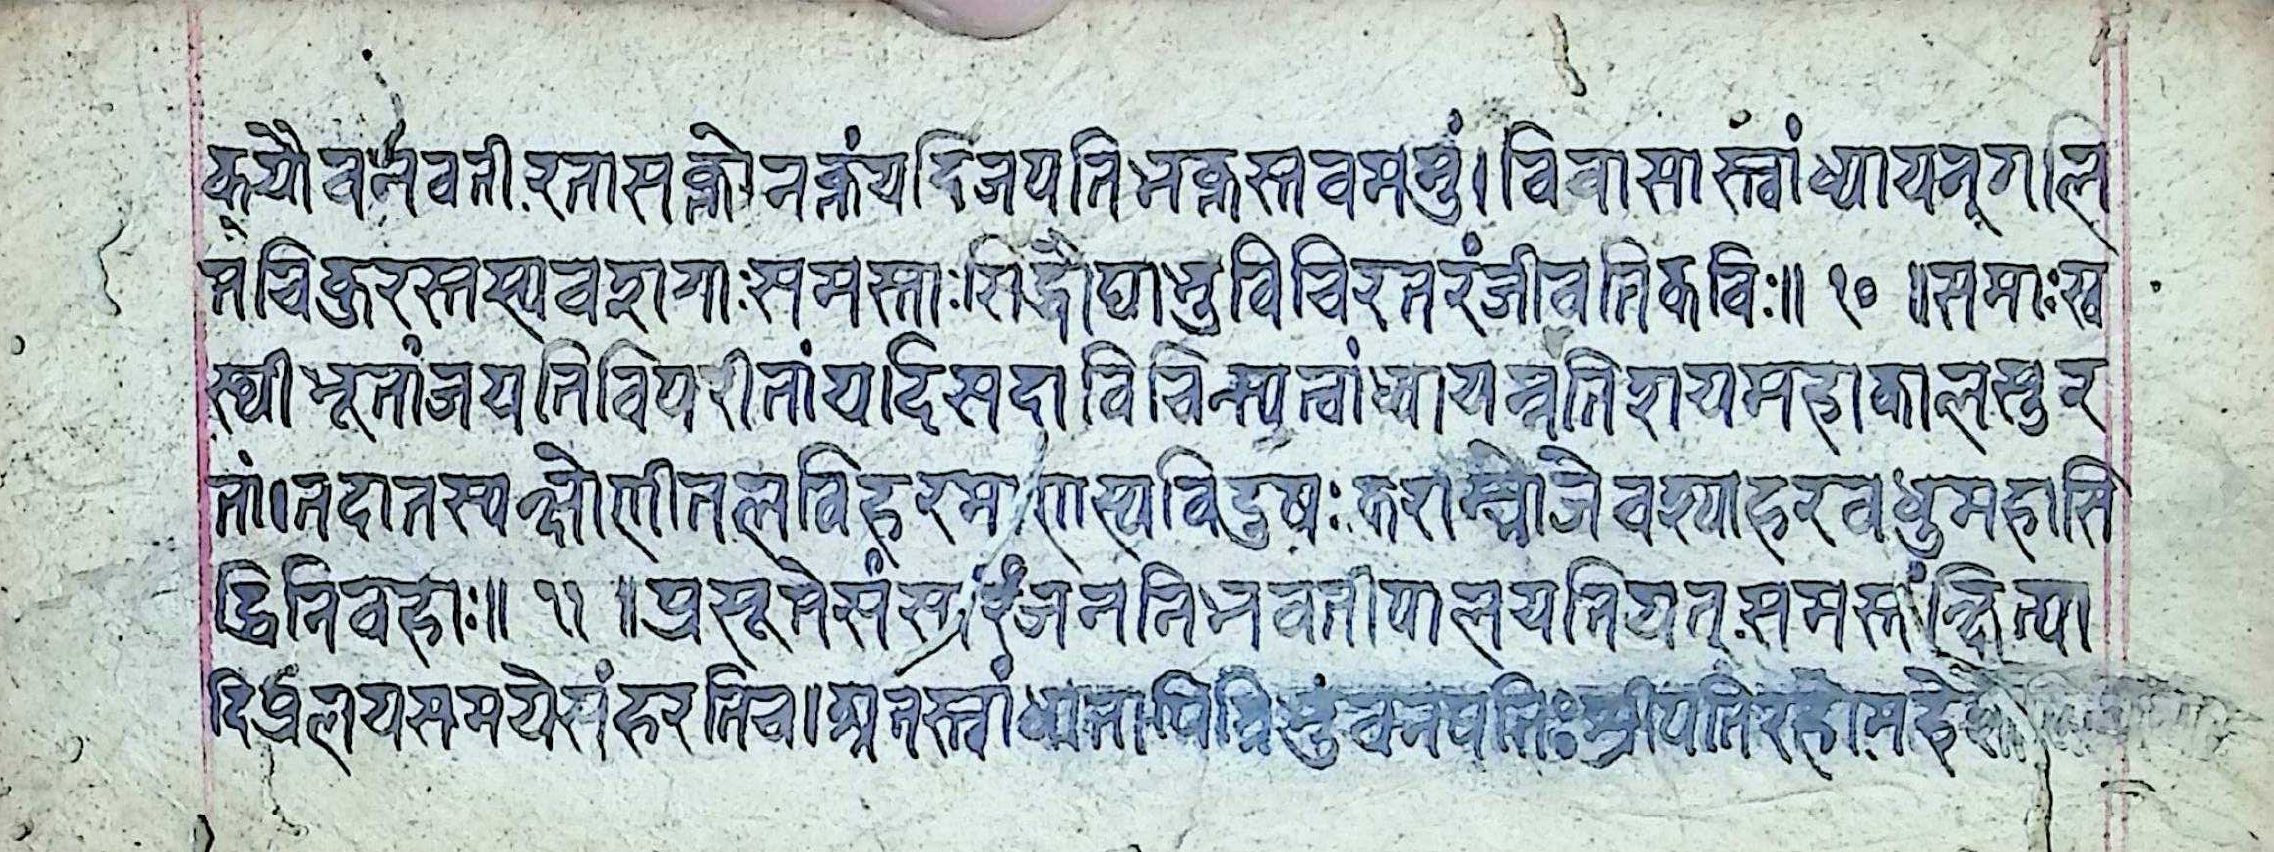 कयौवनवतीरतासक्तोनक्तंयदिजपतिभक्तस्तवममुं।विवासास्त्वांध्यायन्गलि
तचिकुरस्तस्यवशगाःसमस्ताःसिद्धौघाभुविचिरतरंजीवतिकविः॥१०॥समाःस्व
स्थीभूतांजपतिविपरीतांयदिसदाविचिन्त्यत्वांध्यायन्नतिशयमहाकालसुर
तां।तदातस्यक्षोणीतलविहरमाणस्यविदुषःकराम्भोजेवश्याहरवधुमहासि
द्धिनिवहाः॥११॥प्रसूतेसंसारंजननिभवतीपालयतियत्समस्तंक्षित्या
दिप्रलयसमयेसंहरतिच।अतस्त्वांधातापित्रिभुवनपतिःश्रीपतिरहोमहे